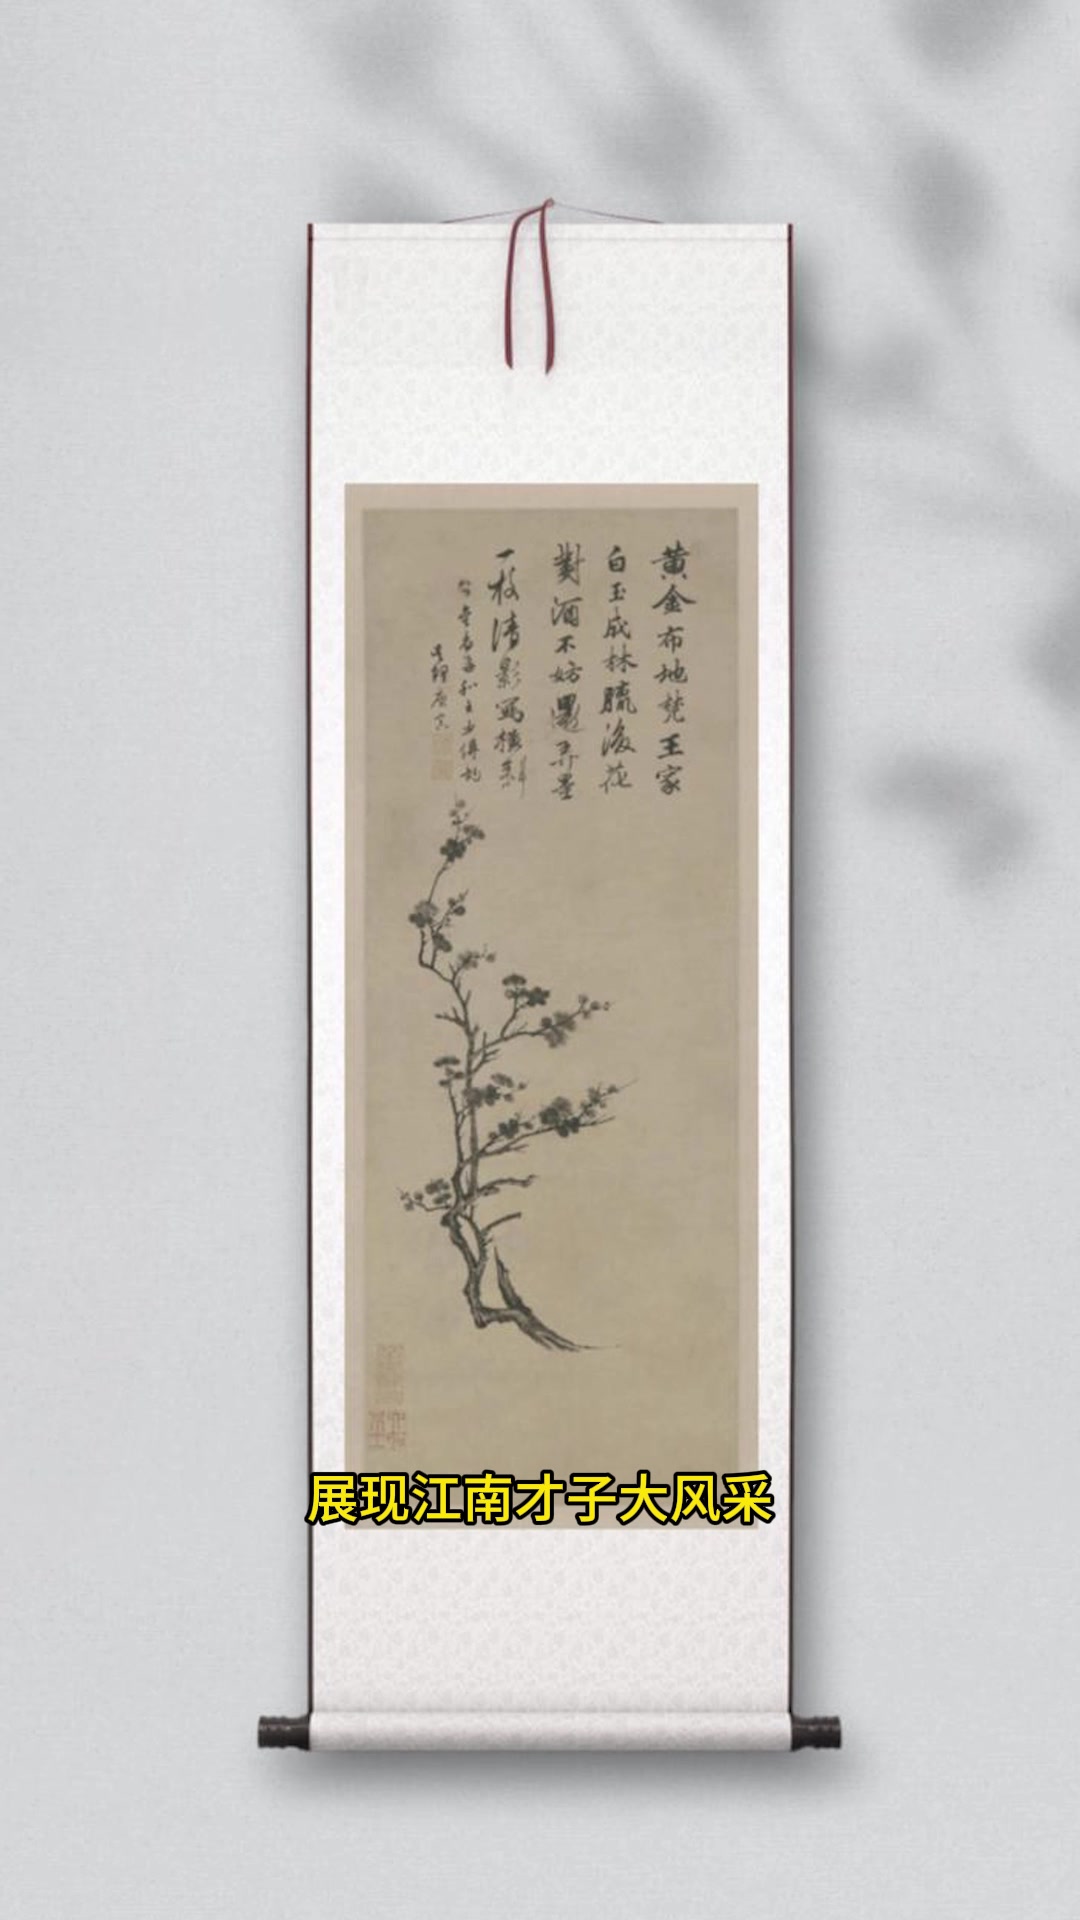 黄金布地梵王家
白玉成林臘後花
對酒不妨還弄墨
一枝清影寫橫斜
展现江南才子大风采